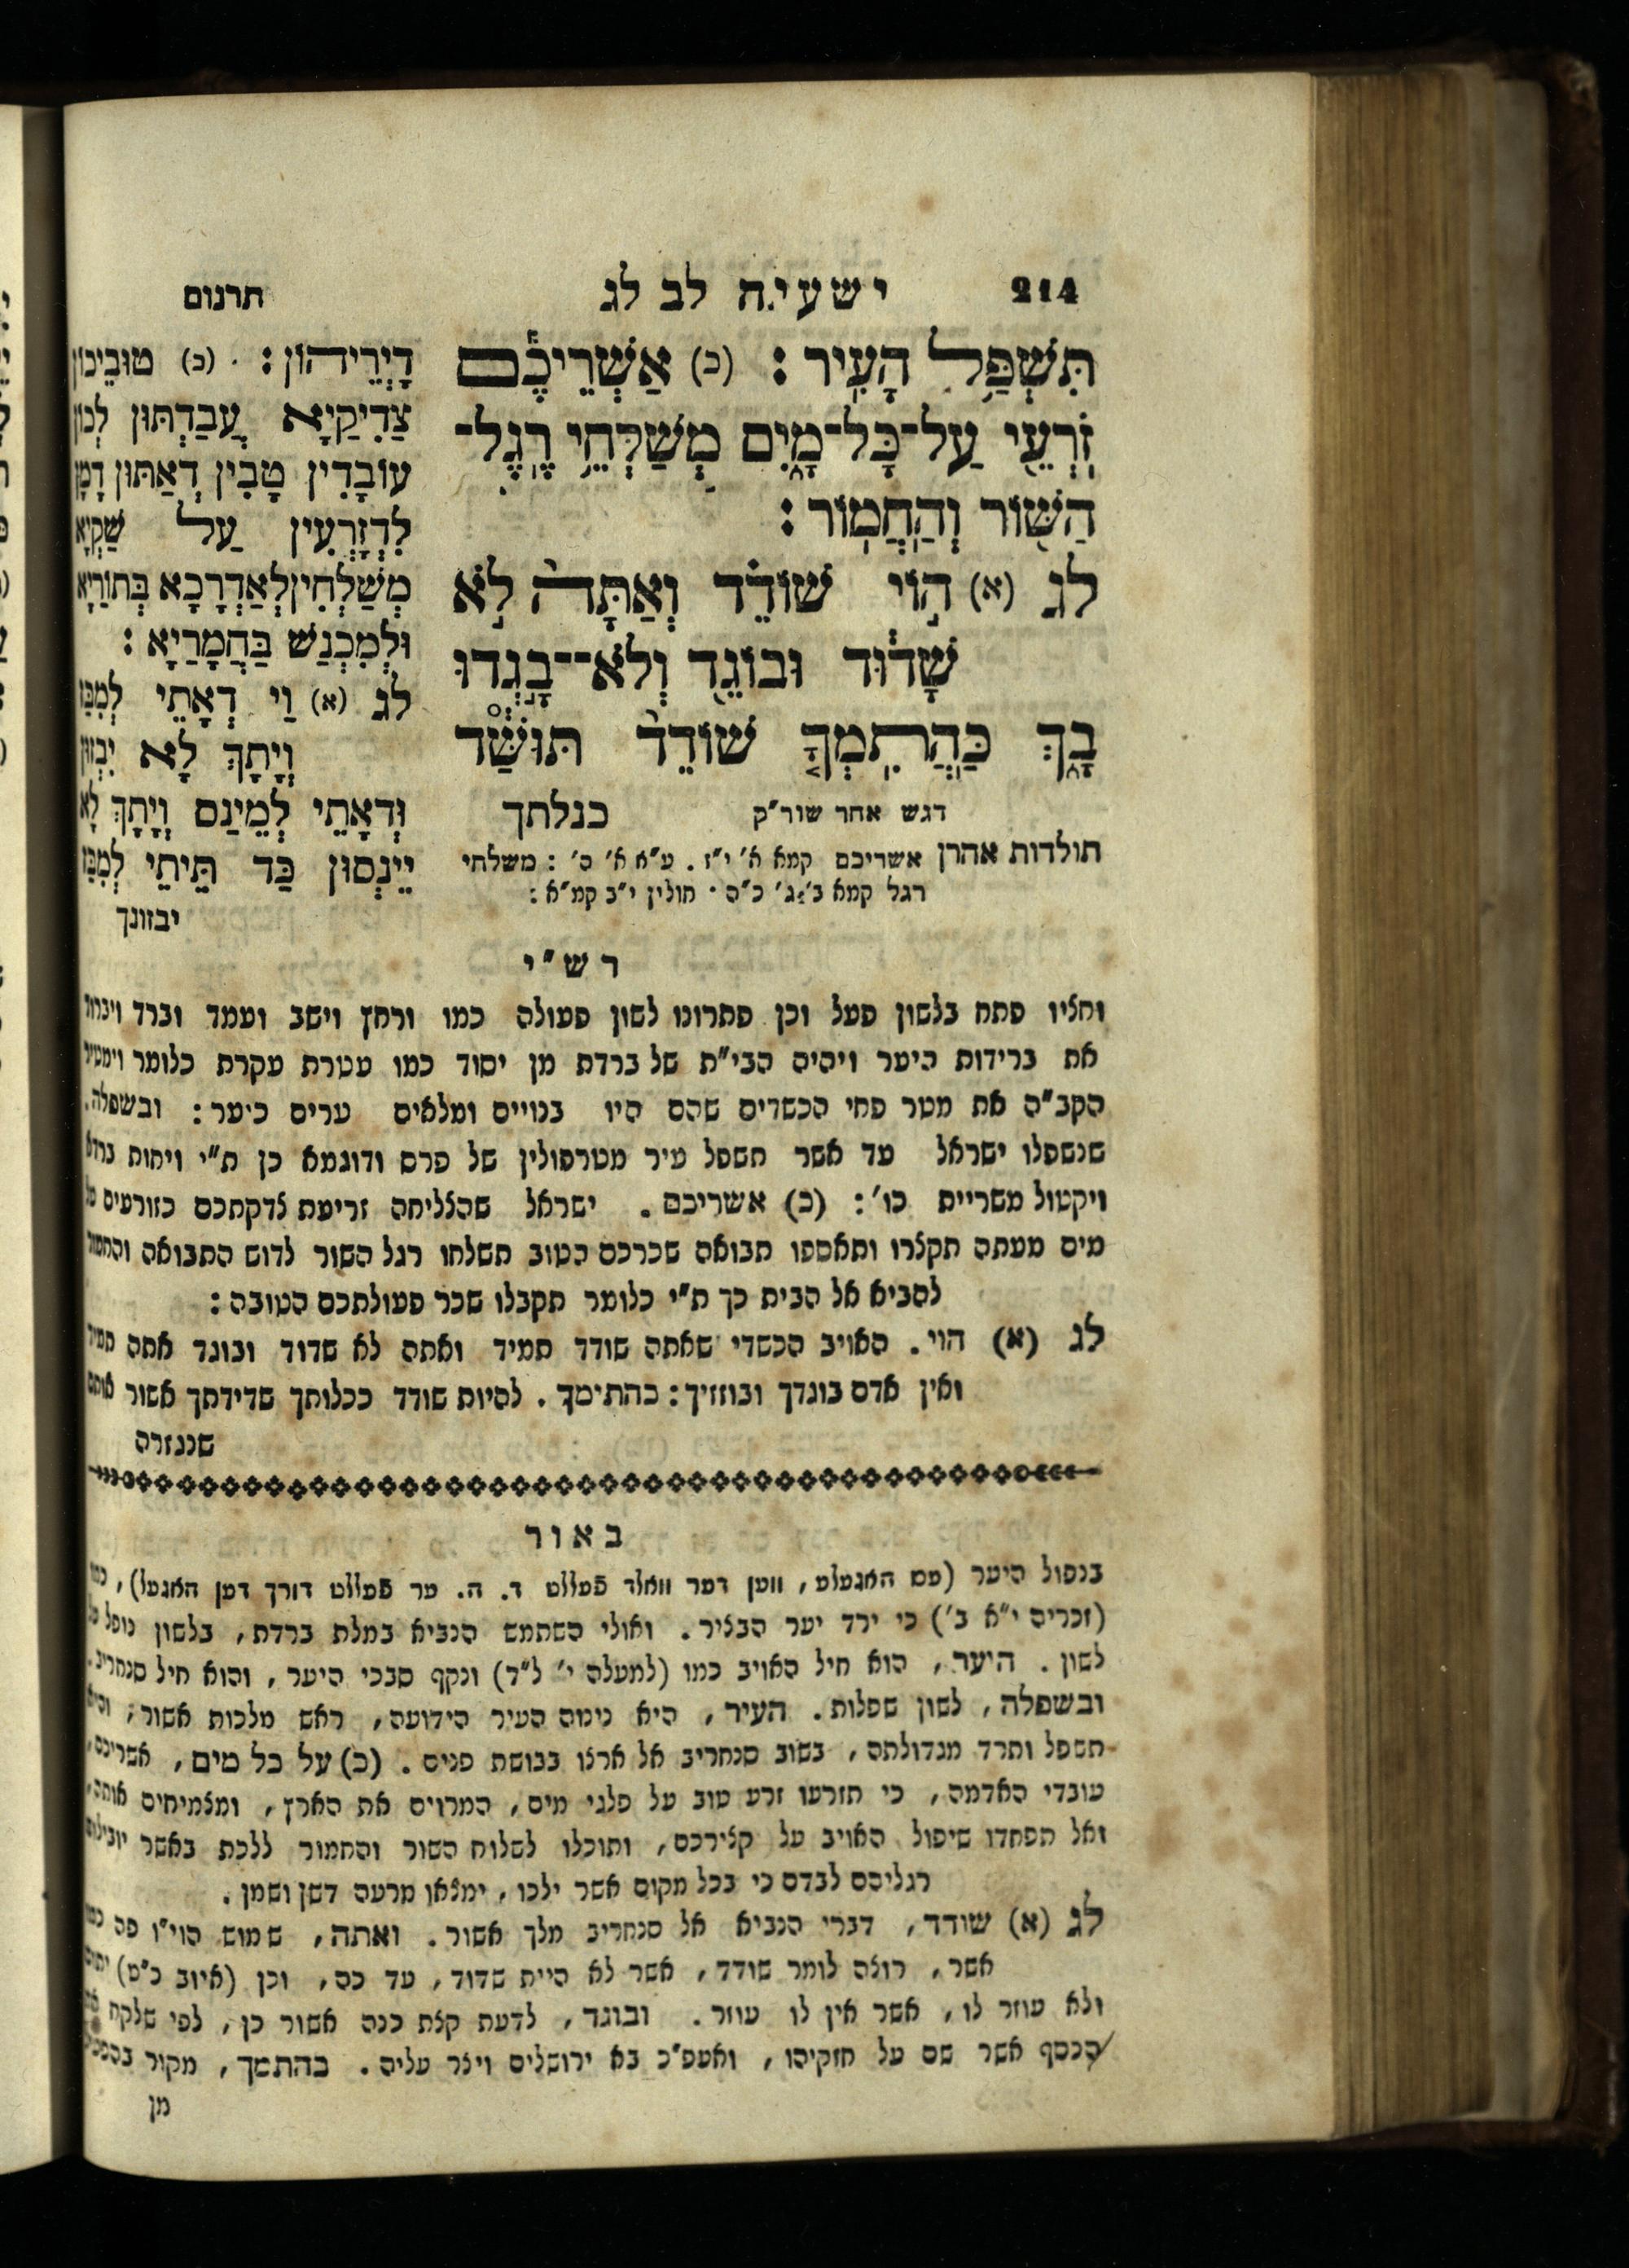 214
ישעיה לב לג
תרגום
תִּשְׁפַּל הָעִיר : (כ) אַשְׁרֵיכֶם
זֹרְעֵי עַל־כָּל־מָיִם מְשַׁלְּחֵי רֶגֶל־
הַשּׁוֹר וְהַחֲמוֹר :
לג (א) הוֹי שׁוֹדֵד וְאַתָּה לֹא
שָׁדוּד וּבוֹגֵד וְלֹא־בָגְדוּ
בָךְ כַּהֲתִמְךָ שׁוֹדֵד תּוּשַּׁד
דגש אחר שור״ק
כנלתך
תולדות אהרן אשריכם קמא א׳ י״ז . ע״א א׳ ס׳ : משלחי
רגל קמא ב׳ ג׳ כ״ס · חולין י״ב קמ״א :
דָיְרֵיהוֹן : (כ) טוּבֵיכוֹן
צַדִיקַיָא עֲבַדְתּוּן לְכוֹן
עוֹבָדִין טָבִין דְאַתּוּן דָמָן
לִדְזָרְעִין עַל שַׁקְיָא
מְשַׁלְחִין לְאַדְרָכָא בְּתוֹרַיָא
וּלְמִכְנַשׁ בַּחֲמָרַיָא :
לג (א) וַי דְאָתֵי לְמִבַּז
וְיָתָךְ לָא יִבְזוּן
וְדְאָתֵי לְמֵינַס וְיָתָךְ לָא
יֵינְסוּן כַּד תֵּיתֵי לְמִבַּז
יבזונך
רש״י
וחליו פתח בלשון פעל וכן פתרונו לשון פעולה כמו ורחץ וישב ועמד וברד ויברור
את ברידות היער ויהיה הבי״ת של ברדת מן יסוד כמו עטרת עקרת כלומר וימטיר
הקב״ה את מטר פחי הכשדים שהם היו בנויים ומלאים ערים כיער : ובשפלה.
שנשפלו ישראל עד אשר תשפל עיר מטרפולין של פרס ודוגמא כן ת״י ויחות ברדא
ויקטול משריית כו׳ : (כ) אשריכם . ישראל שהצליחה זריעת צדקתכם כזורעים על
מים מעתה תקצרו ותאספו תבואה שכרכם הטוב תשלחו רגל השור לדוש התבואה והחמור
להביא אל הבית כך ת״י כלומר תקבלו שכר פעולתכם הטובה :
לג (א) הוי . האויב הכשדי שאתה שודד תמיד ואתה לא שדוד ובוגד אתה תמיד
ואין אדם בוגדך ובוזזיך : כהתימך . להיות שודד ככלותך שדידתך אשר אותם
שנגזרה
באור
בנפול היער (עס האגעלע, ווען דער וואלד פעללט ד. ה. ער פעללט דורך דען האגעל), כמו
(זכריה י״א ב׳) כי ירד יער הבציר . ואולי השתמש הנביא במלת ברדת, בלשון נופל על
לשון . היער, הוא חיל האויב כמו (למעלה י׳ ל״ד) ונקף סבכי היער, והוא חיל סנחריב.
ובשפלה, לשון שפלות. העיר, היא נינוה העיר הידועה, ראש מלכות אשור, והיא
תשפל ותרד מגדולתה, בשוב סנחריב אל ארצו בבושת פנים . (כ) על כל מים, אשריכם,
עובדי האדמה, כי תזרעו זרע טוב על פלגי מים, המרוים את הארץ, ומצמיחים אותה,
ואל תפחדו שיפול האויב על קצירכם, ותוכלו לשלוח השור והחמור ללכת באשר יובילום
רגליהם לבדם כי בכל מקום אשר ילכו, ימצאו מרעה דשן ושמן .
לג (א) שודד, דברי הנביא אל סנחריב מלך אשור. ואתה, שמוש הוי״ו פה כמו
אשר, רוצה לומר שודד, אשר לא היית שדוד, עד כה, וכן (איוב כ״ט) יתום
ולא עוזר לו, אשר אין לו עוזר. ובוגד, לדעת קצת כנה אשור כן, לפי שלקח את
הכסף אשר שם על חזקיהו, ואעפ״כ בא ירושלים ויצר עליה. כהתמך, מקור בהפעיל
מן